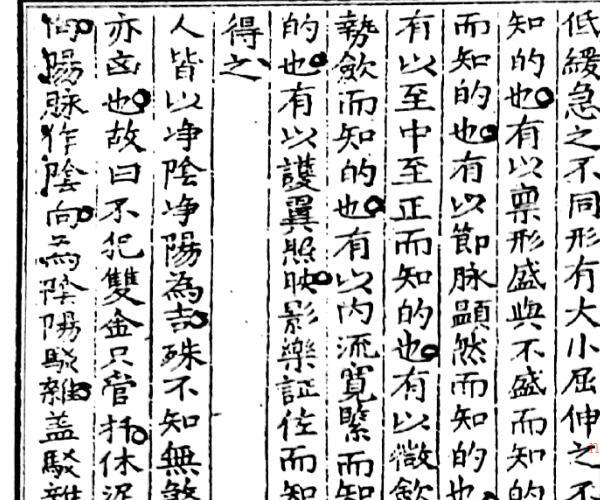 低緩急之不同形有大小屈伸之不
知的也有以稟形盛與不盛而知的
而知的也有以節脉顕然而知的也
有以至中至正而知的也有以微斂
勢斂而知的也有以內流寬緊而知
的也有以護翼照映影樂証佐而知
得之
人皆以净陰净陽為吉殊不知無煞
亦凶也故曰不犯雙金只管扦休泥
陽脉作陰向為陰陽駁雜蓋駁雜